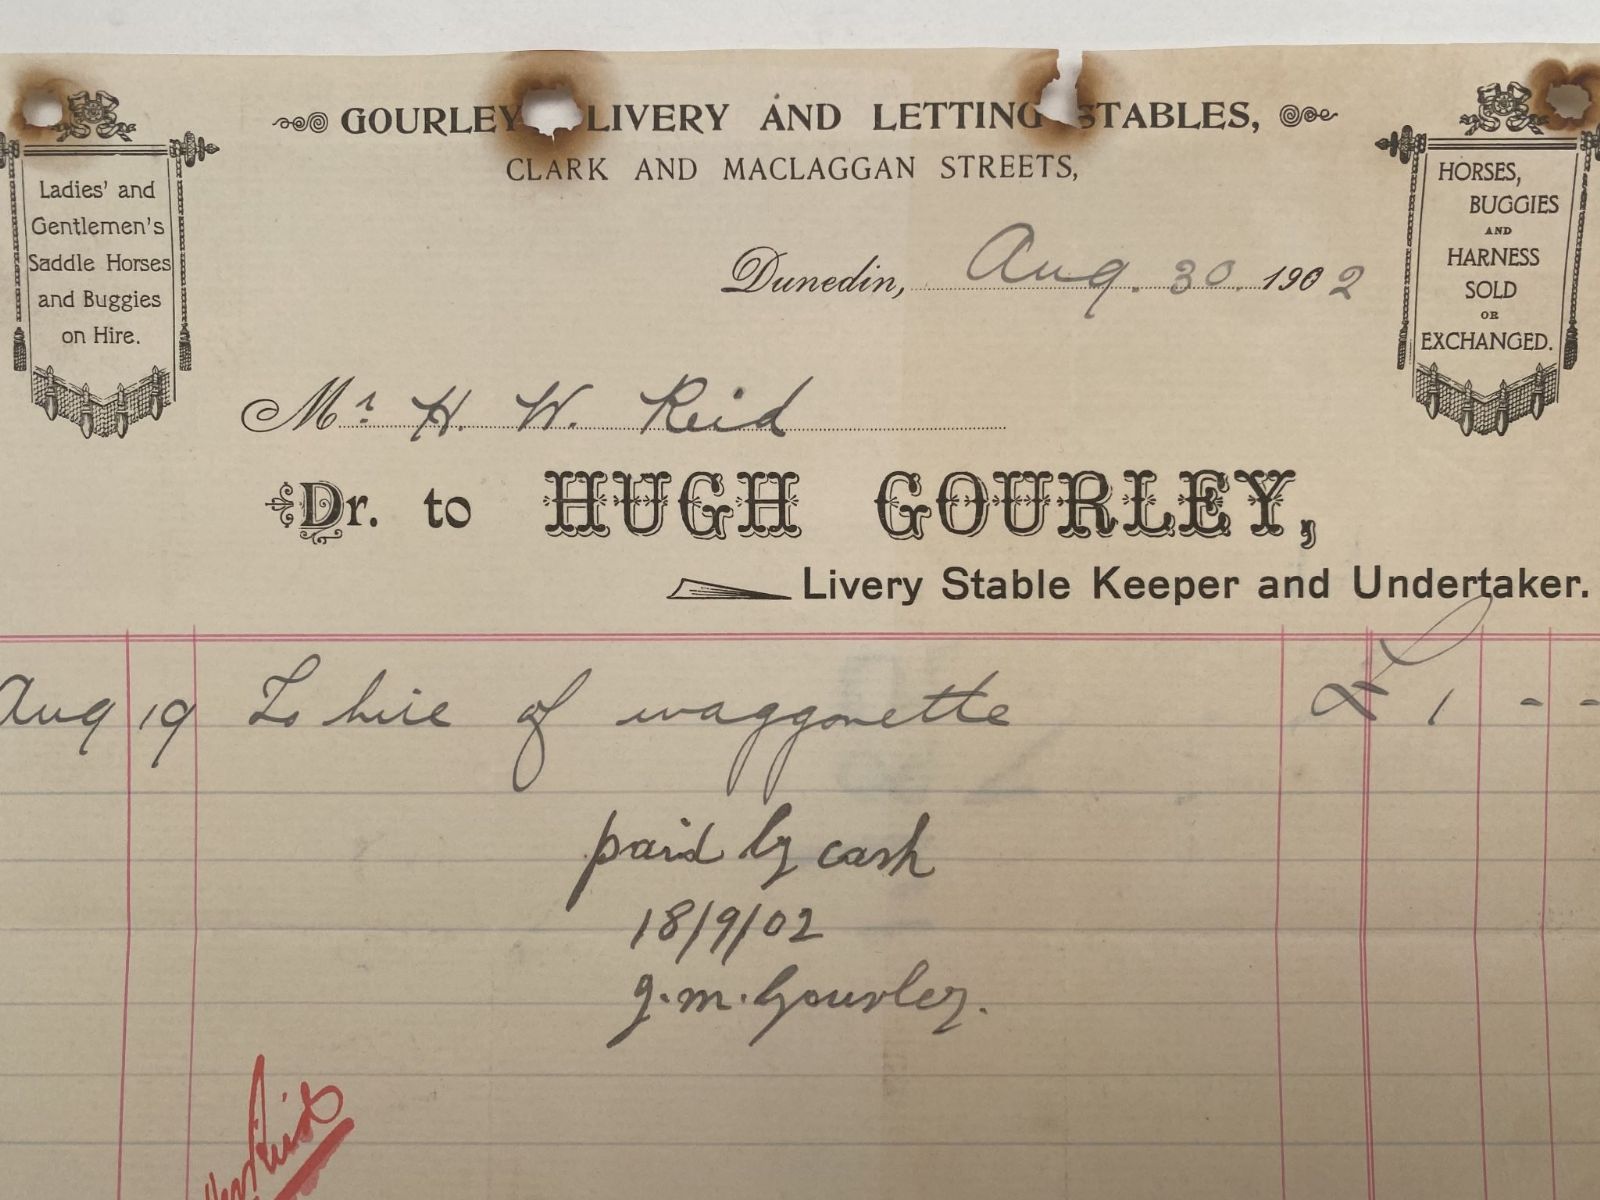 GOURLEY LIVERY AND LETTING STABLES,
CLARK AND MACLAGGAN STREETS,
Ladies' and
Gentlemen's
Saddle Horses
and Buggies
on Hire.
HORSES,
BUGGIES
AND
HARNESS
SOLD
OR
EXCHANGED.
Dunedin, Aug. 30. 1902
Mr H. W. Reid
Dr. to HUGH GOURLEY,
Livery Stable Keeper and Undertaker.
Aug 19 To hire of waggonette £ 1 - -
paid by cash
18/9/02
g.m. Gourley.